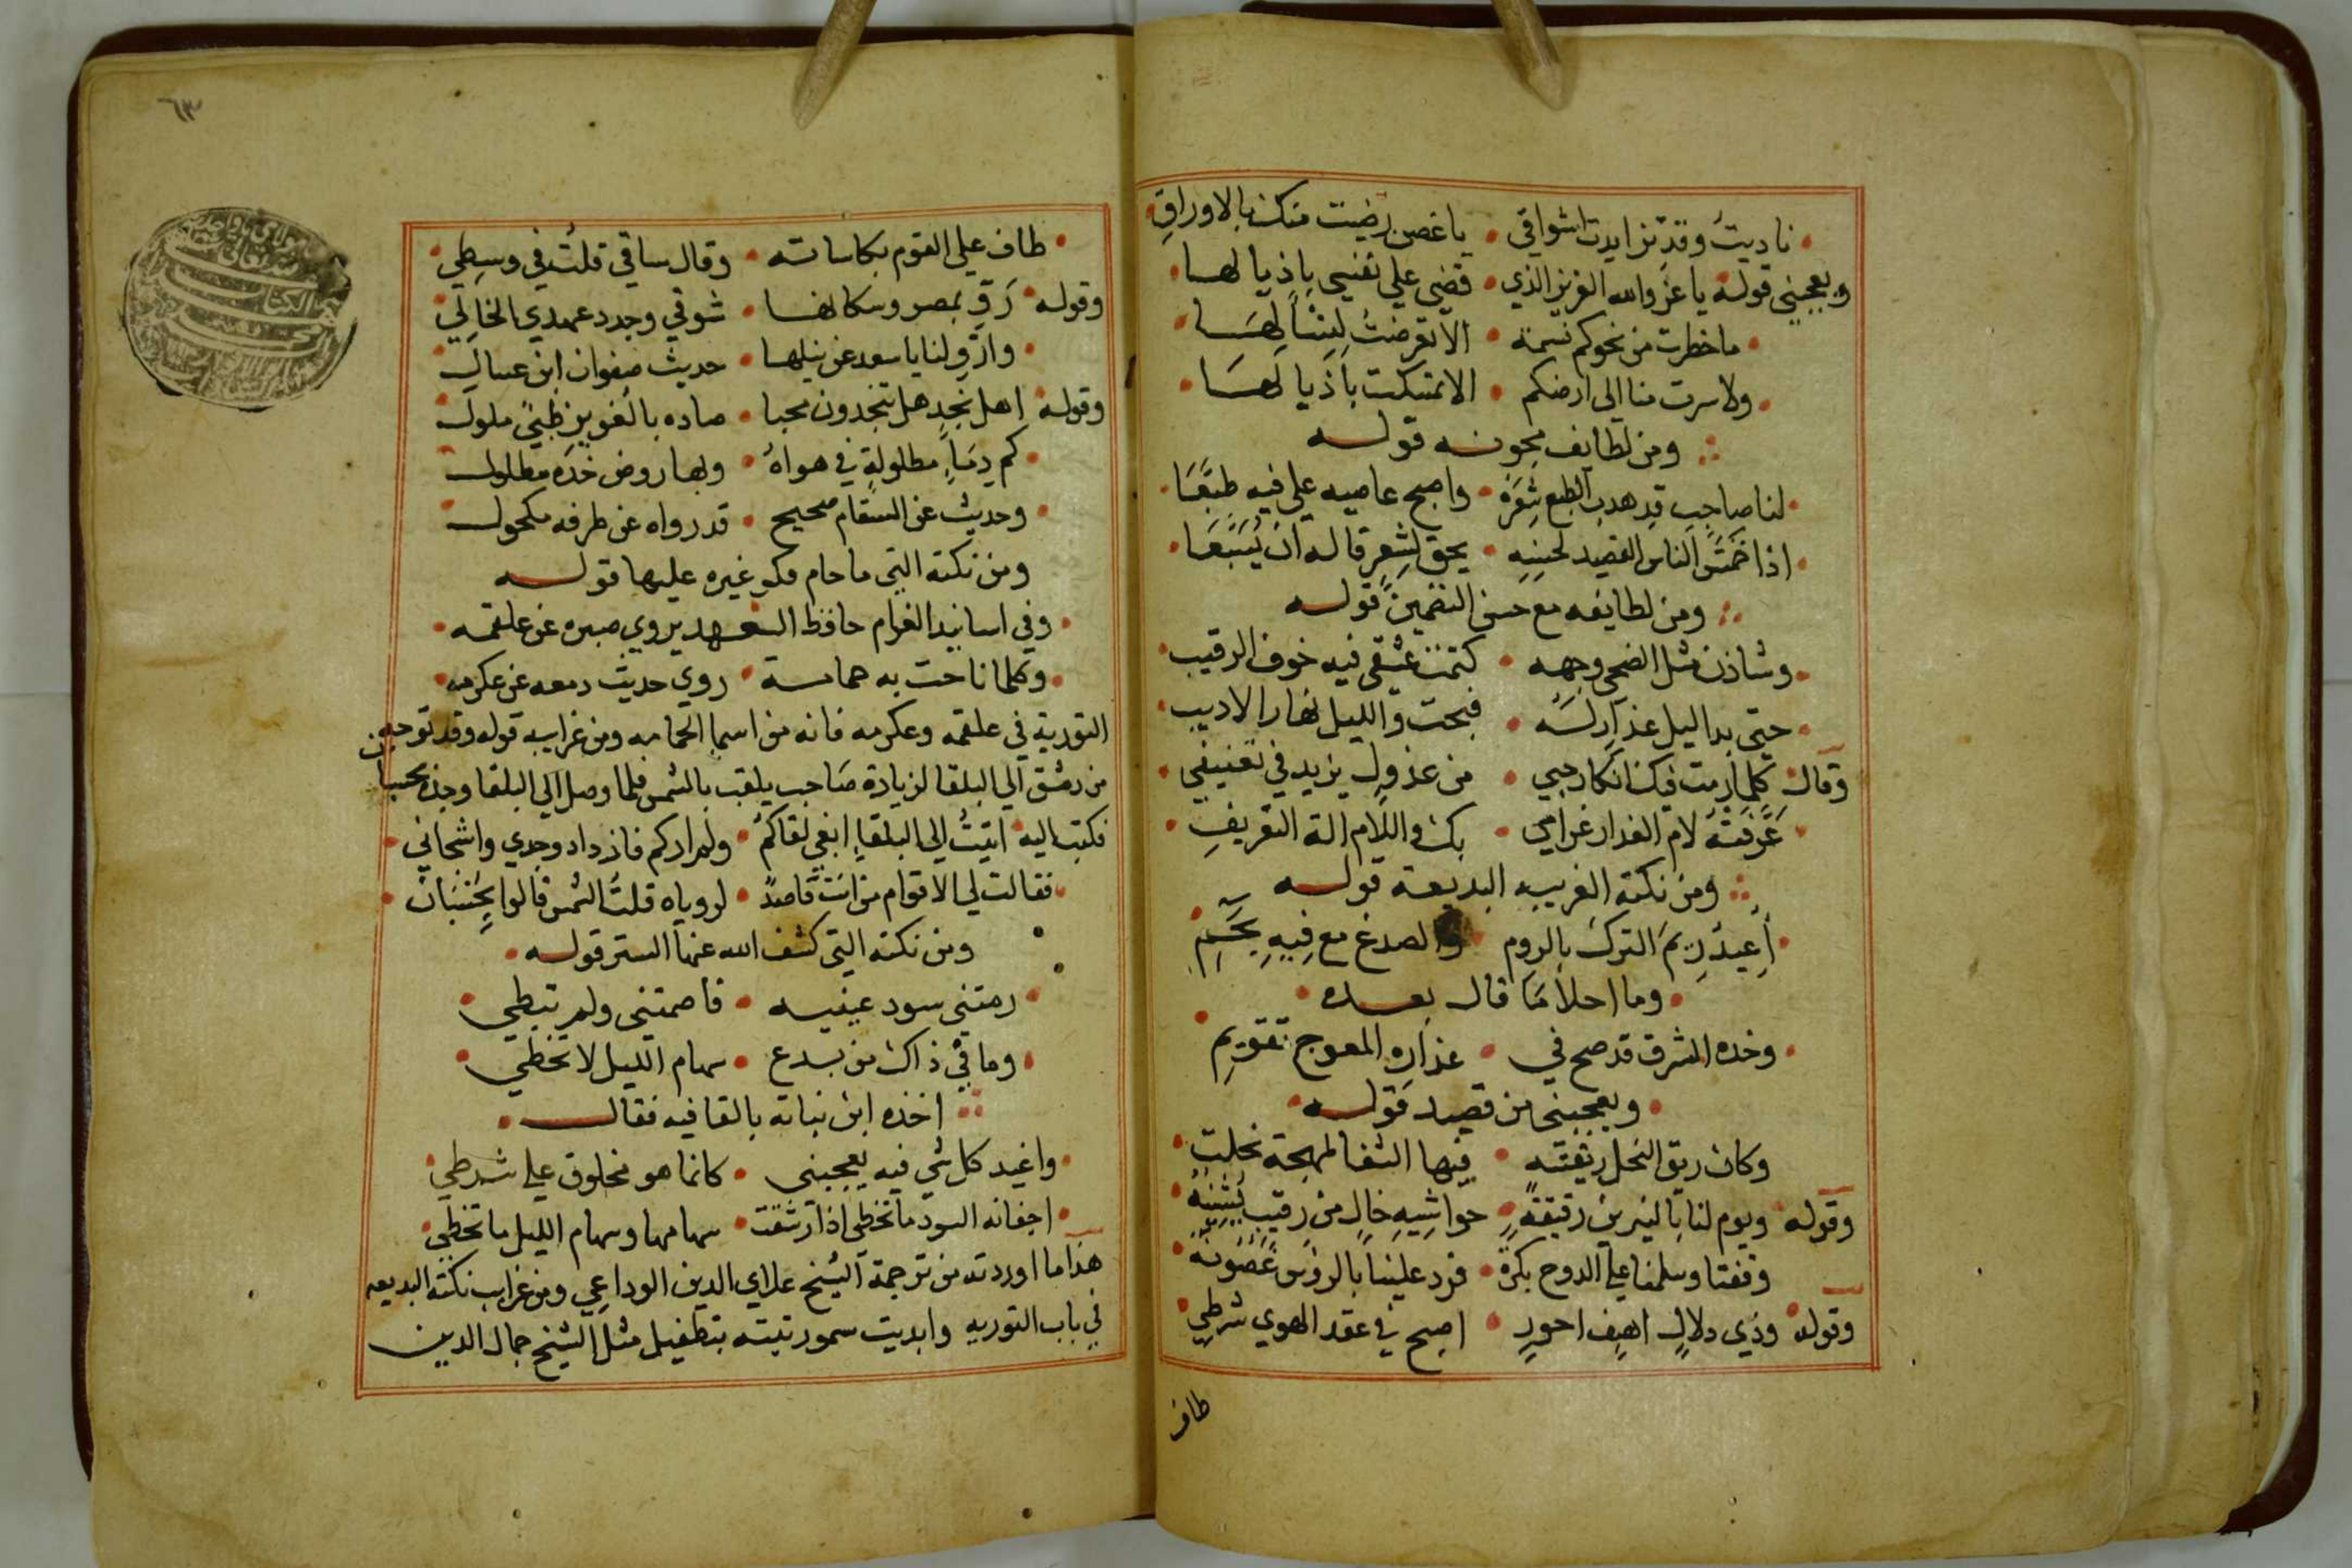 ناديت وقد تزايدت اشواقي • يا غصن رضيت منك بالاوراق
ويعجبني قوله يا عز والله العزيز الذي • قضي علي نفسي باذيالها
ما خطرت من نحوكم نسمة • الا تعرضت ليثنا لها
ولا سرت منا الي ارضكم • الا تمسكت باذيالها
ومن لطايف مجونه قوله
لنا صاحب قد هدب الطبع شعره • واصبح عاصيه علي فيه طيعا
اذا خمس الناس القصيد لحسنه • يحق لشعر قاله ان يسبعا
ومن لطايفه مع حسن التضمين قوله
وشاذن مثل الضحي وجهه • كتمت عشقي فيه خوف الرقيب
حتي بدا ليل عذار له • فبحت والليل نهار الاديب
وقال كلما رمت فيك انكار حبي • من عذول يزيد في تعنيفي
عرفته لام العذار غرامي • بك واللام الة التعريف
ومن نكته الغريبه البديعة قوله
أعيذ ريم الترك بالروم والصدغ مع فيه بحم
وما احلا ما قال بعده
وخده المشرق قد صح في • عذاره المعوج تقويم
ويعجبني من قصيد قوله
وكان ريق النحل ريقته • فيها الشفا لمهجة نحلت
وقوله ويوم لنا بالنيربين رقيقة • حواشيه خال من رقيب يشينه
وقفنا وسلمنا علي الدوح بكرة • فرد علينا بالروس غصونه
وقوله وذي دلال اهيف احور • اصبح في عقد الهوي شرطي
طاف
٦٣
طاف علي القوم بكاساته • وقال ساقي قلت في وسطي
وقوله رق بمصر وسكانها • شوقي وجدد عهدي الخالي
وارو لنا يا سعد عن نيلها • حديث صفوان ابن عسال
وقوله اهل نجد هل تنجدون محبا • صاده بالغوير ظبي ملول
كم دماء مطلولة في هواه • وبها روض خده مطلول
وحديث عن السقام صحيح • قد رواه عن طرفه مكحول
ومن نكته التي ما حام فكر غيره عليها قوله
وفي اسانيد الغرام حافظ العهد يروي صبره عن علقمه
وكلما ناحت به حمامة • روي حديث دمعه عن عكرمه
التورية في علقمه وعكرمه فانه من اسما الحمامه ومن غرايب قوله وقد توجه
من دمشق الي البلقا لزيادة صاحب يلقب بالشمس فلما وصل الي البلقا وجده بحسبان
فكتب اليه اتيت الي البلقا ابغي لقاكم • ولم اركم فازداد وجدي واشجاني
فقالت لي الاقوام من انت قاصد • لروياه قلت الشمس قالوا بحسبان
ومن نكته التي كشف الله عنها الستر قوله
رمتني سود عينيه • فاصمتني ولم تبطي
وما في ذاك من بدع • سهام الليل لا تخطي
اخذه ابن نباته بالقافيه فقال
واغيد كل شي فيه يعجبني • كانما هو مخلوق علي شرطي
اجفانه السود ما تخطي اذا رشقت • سهامها وسهام الليل ما تخطي
هذا ما اوردته من ترجمة الشيخ علاي الدين الوداعي ومن غرايب نكته البديعه
في باب التوريه وابديت سمو رتبته بتطفيل مثل الشيخ جمال الدين